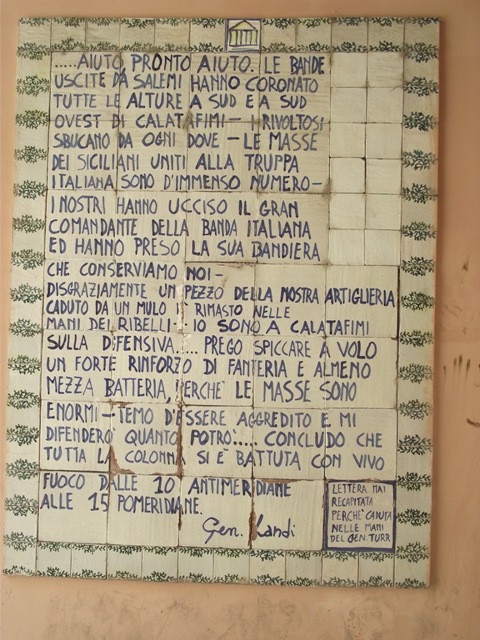 .....AIUTO, PRONTO AIUTO. LE BANDE
USCITE DA SALEMI HANNO CORONATO
TUTTE LE ALTURE A SUD E A SUD
OVEST DI CALATAFIMI – I RIVOLTOSI
SBUCANO DA OGNI DOVE – LE MASSE
DEI SICILIANI UNITI ALLA TRUPPA
ITALIANA SONO D'IMMENSO NUMERO –
I NOSTRI HANNO UCCISO IL GRAN
COMANDANTE DELLA BANDA ITALIANA
ED HANNO PRESO LA SUA BANDIERA
CHE CONSERVIAMO NOI –
DISGRAZIAMENTE UN PEZZO DELLA NOSTRA ARTIGLIERIA
CADUTO DA UN MULO È RIMASTO NELLE
MANI DEI RIBELLI – IO SONO A CALATAFIMI
SULLA DIFENSIVA..... PREGO SPICCARE A VOLO
UN FORTE RINFORZO DI FANTERIA E ALMENO
MEZZA BATTERIA, PERCHE' LE MASSE SONO
ENORMI – TEMO D'ESSERE AGGREDITO E MI
DIFENDERO' QUANTO POTRO'..... CONCLUDO CHE
TUTTA LA COLONNA SI E' BATTUTA CON VIVO
FUOCO DALLE 10 ANTIMERIDIANE
ALLE 15 POMERIDIANE.
Gen. Landi
LETTERA MAI
RECAPITATA
PERCHE' CADUTA
NELLE MANI
DEL GEN. TURR